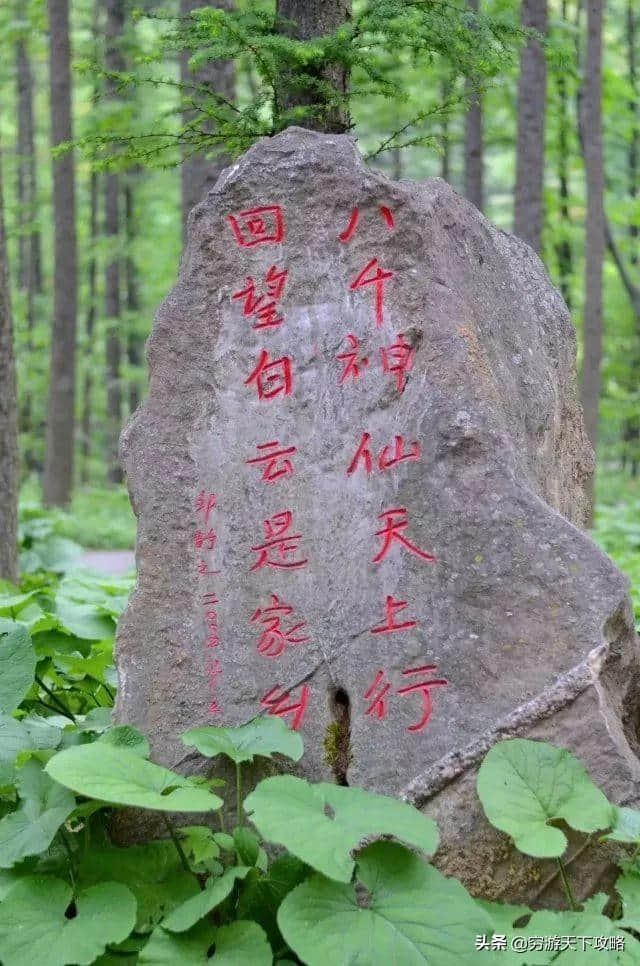 八千神仙天上行
回望白云是家乡
邹静之 二〇
头条 @穷游天下攻略